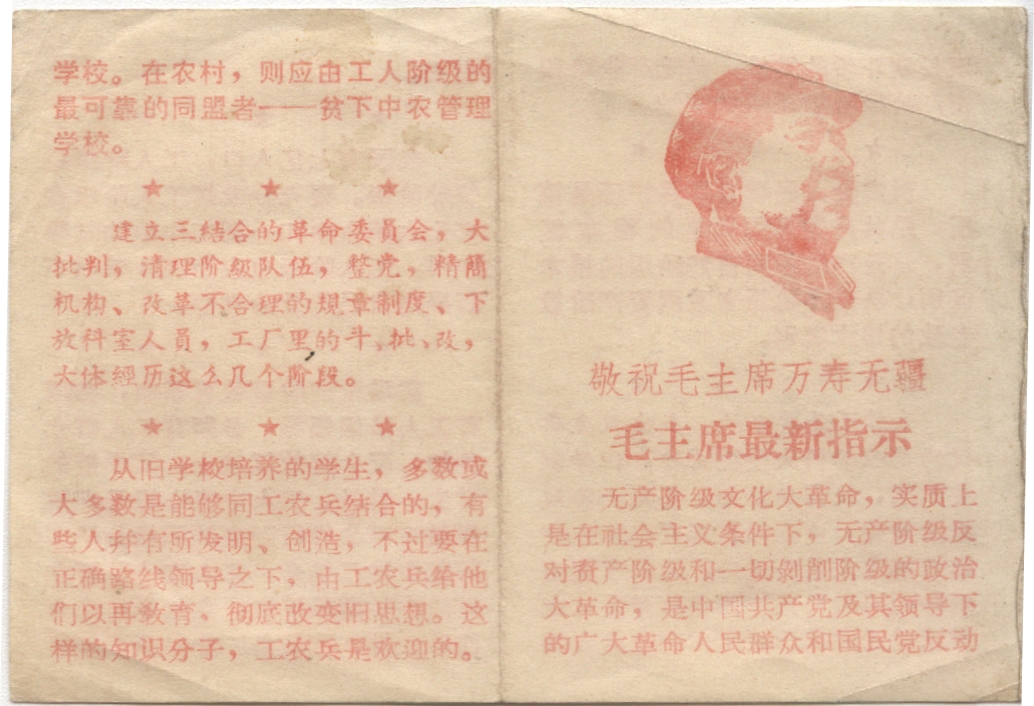 学校。在农村，则应由工人阶级的
最可靠的同盟者——贫下中农管理
学校。
★ ★ ★
建立三結合的革命委員会，大
批判，清理阶級队伍，整党，精簡
机构、改革不合理的規章制度、下
放科室人員，工厂里的斗、批、改，
大体經历这么几个阶段。
★ ★ ★
从旧学校培养的学生，多数或
大多数是能够同工农兵结合的，有
些人并有所发明、创造，不过要在
正确路线领导之下，由工农兵给他
们以再敎育，彻底改变旧思想。这
样的知识分子，工农兵是欢迎的。
敬祝毛主席万寿无疆
毛主席最新指示
无产阶级文化大革命，实质上
是在社会主义条件下，无产阶级反
对资产阶级和一切剝削阶级的政治
大革命，是中国共产党及其领导下
的广大革命人民群众和国民党反动